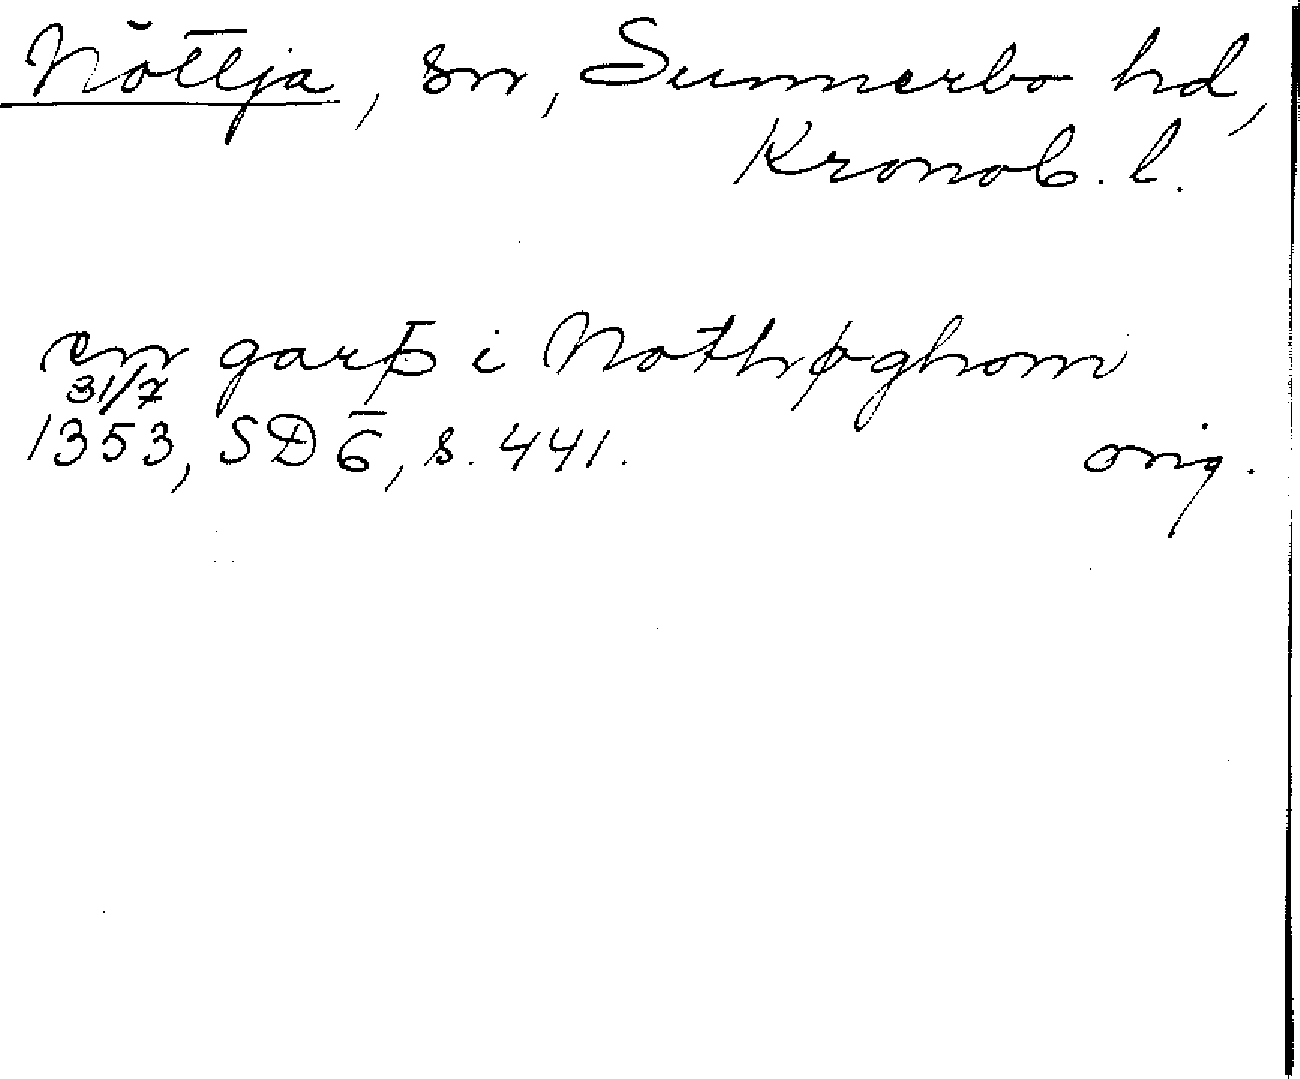 Nöttja, sn, Sunnerbo hd,
Kronob. l.
en garþ i Nothøghom
31/7
1353, SD 6, s. 441. orig.